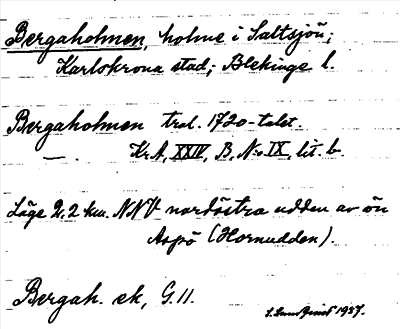 Bergaholmen, holme i Saltsjön;
Karlskrona stad; Blekinge l.
Bergaholmen tral. 1720-talet.
— Kr.A, XXIV, B, N:o IX, lit. b.
Läge 2,2 km. NNV nordöstra udden av ön
Aspö (Hornudden).
Bergah. ek, G. 11.
1937.